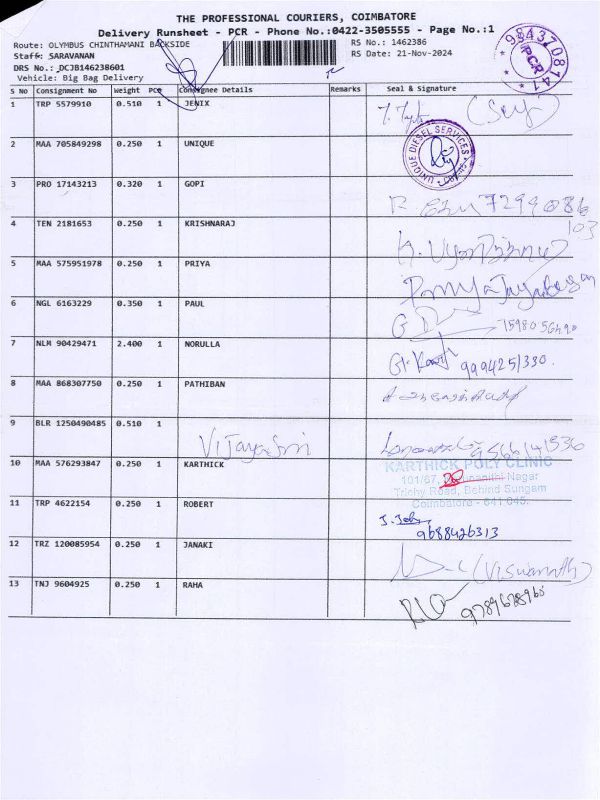 THE PROFESSIONAL COURIERS, COIMBATORE
Delivery Runsheet - PCR - Phone No.:0422-3505555 - Page No.:1
Route: OLYMBUS CHINTHAMANI BACKSIDE
RS No.: 1462386
Staff: SARAVANAN
RS Date: 21-Nov-2024
DRS No.: DCJB146238601
Vehicle: Big Bag Delivery
9843708141
PCR
S No Consignment No Weight PCs Consignee Details Remarks Seal & Signature
1 TRP 5579910 0.510 1 JENIX
2 MAA 705849298 0.250 1 UNIQUE
UNIQUE DIESEL SERVICES
3 PRO 17143213 0.320 1 GOPI
7299086
103
4 TEN 2181653 0.250 1 KRISHNARAJ
5 MAA 575951978 0.250 1 PRIYA
6 NGL 6163229 0.350 1 PAUL
7 NLM 90429471 2.400 1 NORULLA
9994251330.
8 MAA 868307750 0.250 1 PATHIBAN
9 BLR 1250490485 0.510 1
Vijayasri
9566141536
10 MAA 576293847 0.250 1 KARTHICK
KARTHICK POLY CLINIC
101/67, Nagar
Trichy Road, Behind Sungam
Coimbatore - 641 045.
11 TRP 4622154 0.250 1 ROBERT
9688426313
12 TRZ 120085954 0.250 1 JANAKI
(Viswanath)
13 TNJ 9604925 0.250 1 RAHA